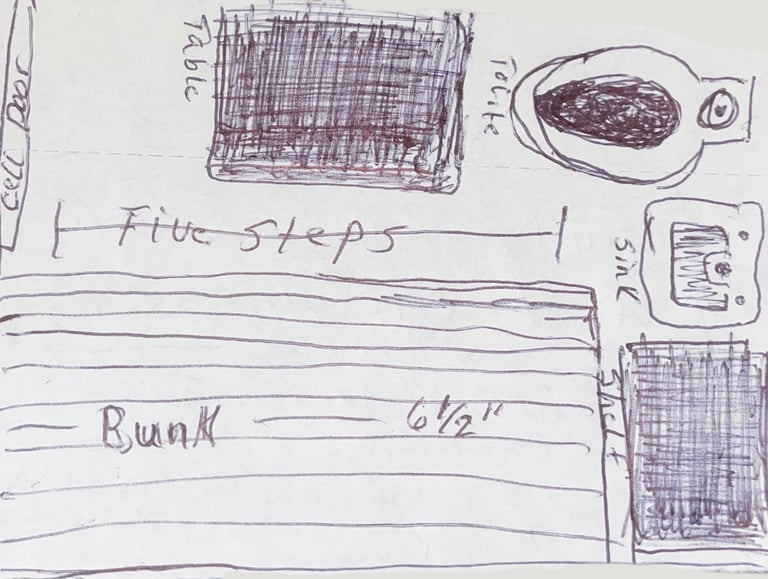 Cell Door
Table
Tolite
Five steps
Sink
Bunk 6 1/2"
Shelf